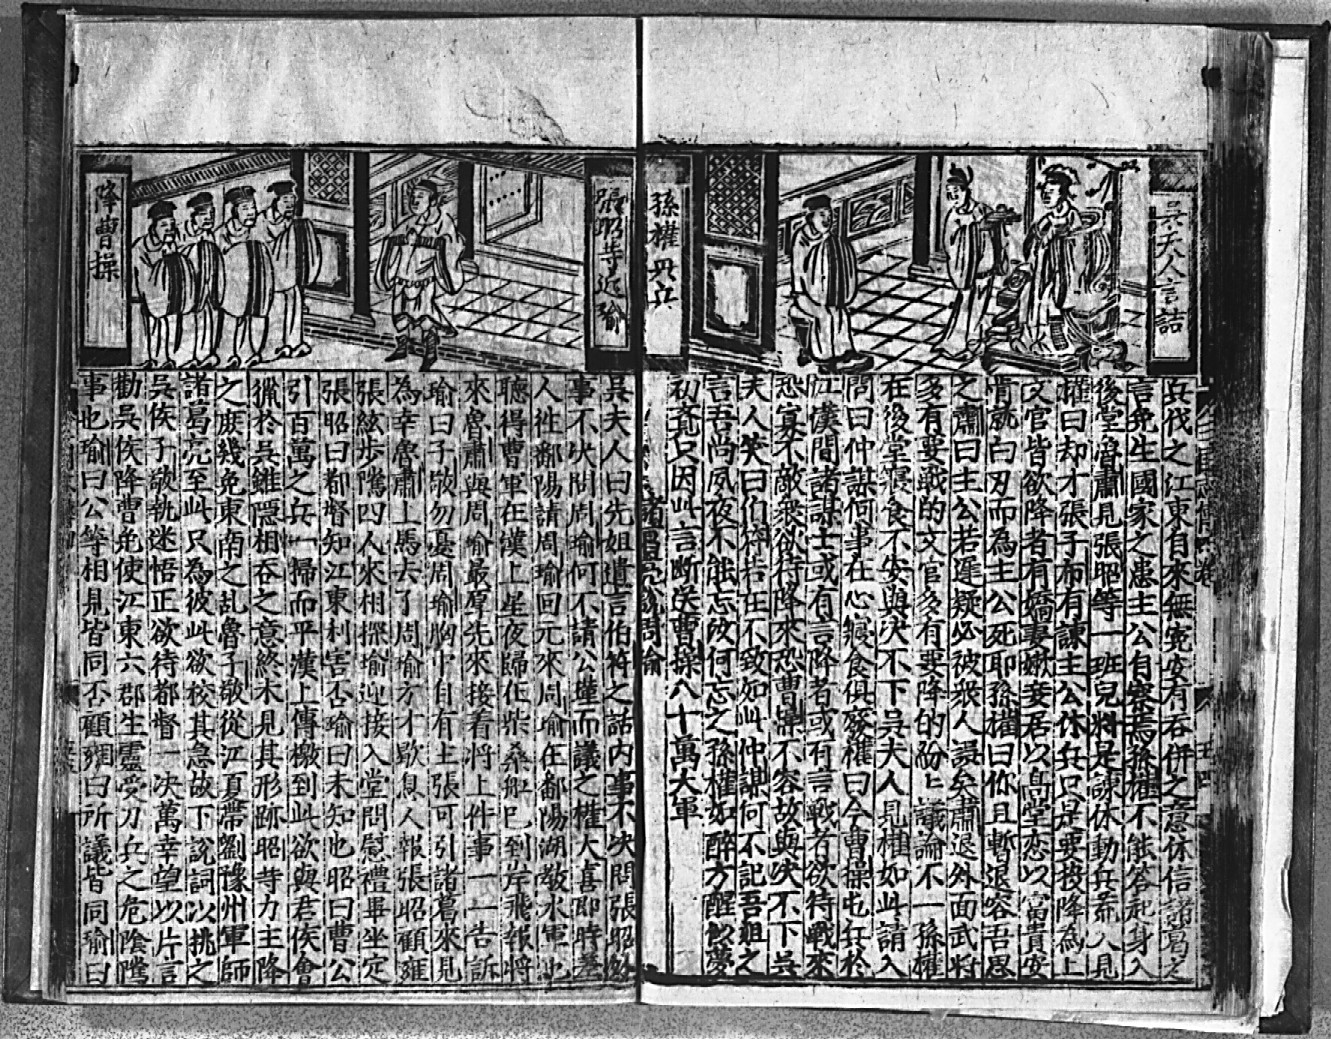 吳夫人言詰
孫權興兵
兵伐之江東自來無寃安有吞併之意休信諸葛之
言免生國家之患主公自察焉孫權不能答起身入
後堂魯肅見張昭等一班兒料是諫休動兵荒入見
權曰却才張子布有諫主公休兵只是要投降為上
文官皆欲降者有嬌妻嫩妾居以高堂恋以富貴安
肯就白刃而為主公死耶孫權曰你且暫退容吾思
之肅曰主公若遲疑必被衆人誤矣肅退外面武將
多有要戰的文官多有要降的紛紛議論不一孫權
在後堂寢食不安與決不下吳夫人見權如此請入
問曰仲謀何事在心寢食俱廢權曰今曹操屯兵於
江漢間諸謀士或有言降者或有言戰者欲待戰來
恐寡不敵衆欲待降來恐曹操不容故與決不下吳
夫人笑曰伯符若在不致如此仲謀何不記吾姐之
言吾尚夙夜不能忘汝何忘之孫權如醉方醒似夢
初覺只因此言斷送曹操八十萬大軍
諸葛亮說周瑜
張昭等迎瑜
降曹操
吳夫人曰先姐遺言伯符之話內事不決問張昭外
事不決問周瑜何不請公瑾而議之權大喜即時差
人往鄱陽請周瑜回元來周瑜在鄱陽湖教水軍也
聽得曹軍在漢上星夜歸在柴桑船已到岸飛報將
來魯肅與周瑜最厚先來接着將上件事一一告訴
瑜曰子敬勿憂周瑜胸中自有主張可引諸葛來見
為幸魯肅上馬去了周瑜方才歇息人報張昭顧雍
張紘步隲四人來相探瑜迎接入堂問慰禮畢坐定
張昭曰都督知江東利害否瑜曰未知也昭曰曹公
引百萬之兵一掃而平漢上傳檄到此欲與君侯會
獵於吳雖隱相吞之意終未見其形跡昭等力主降
之庶幾免東南之乱魯子敬從江夏帶劉豫州軍師
諸葛亮至此只為彼此欲校其急故下說詞以挑之
吳侯子敬執迷悟正欲待都督一决萬幸望以片言
勸吳侯降曹免使江東六郡生靈受刀兵之危險隲
事也瑜曰公等相見皆同否顧雍曰所議皆同瑜曰